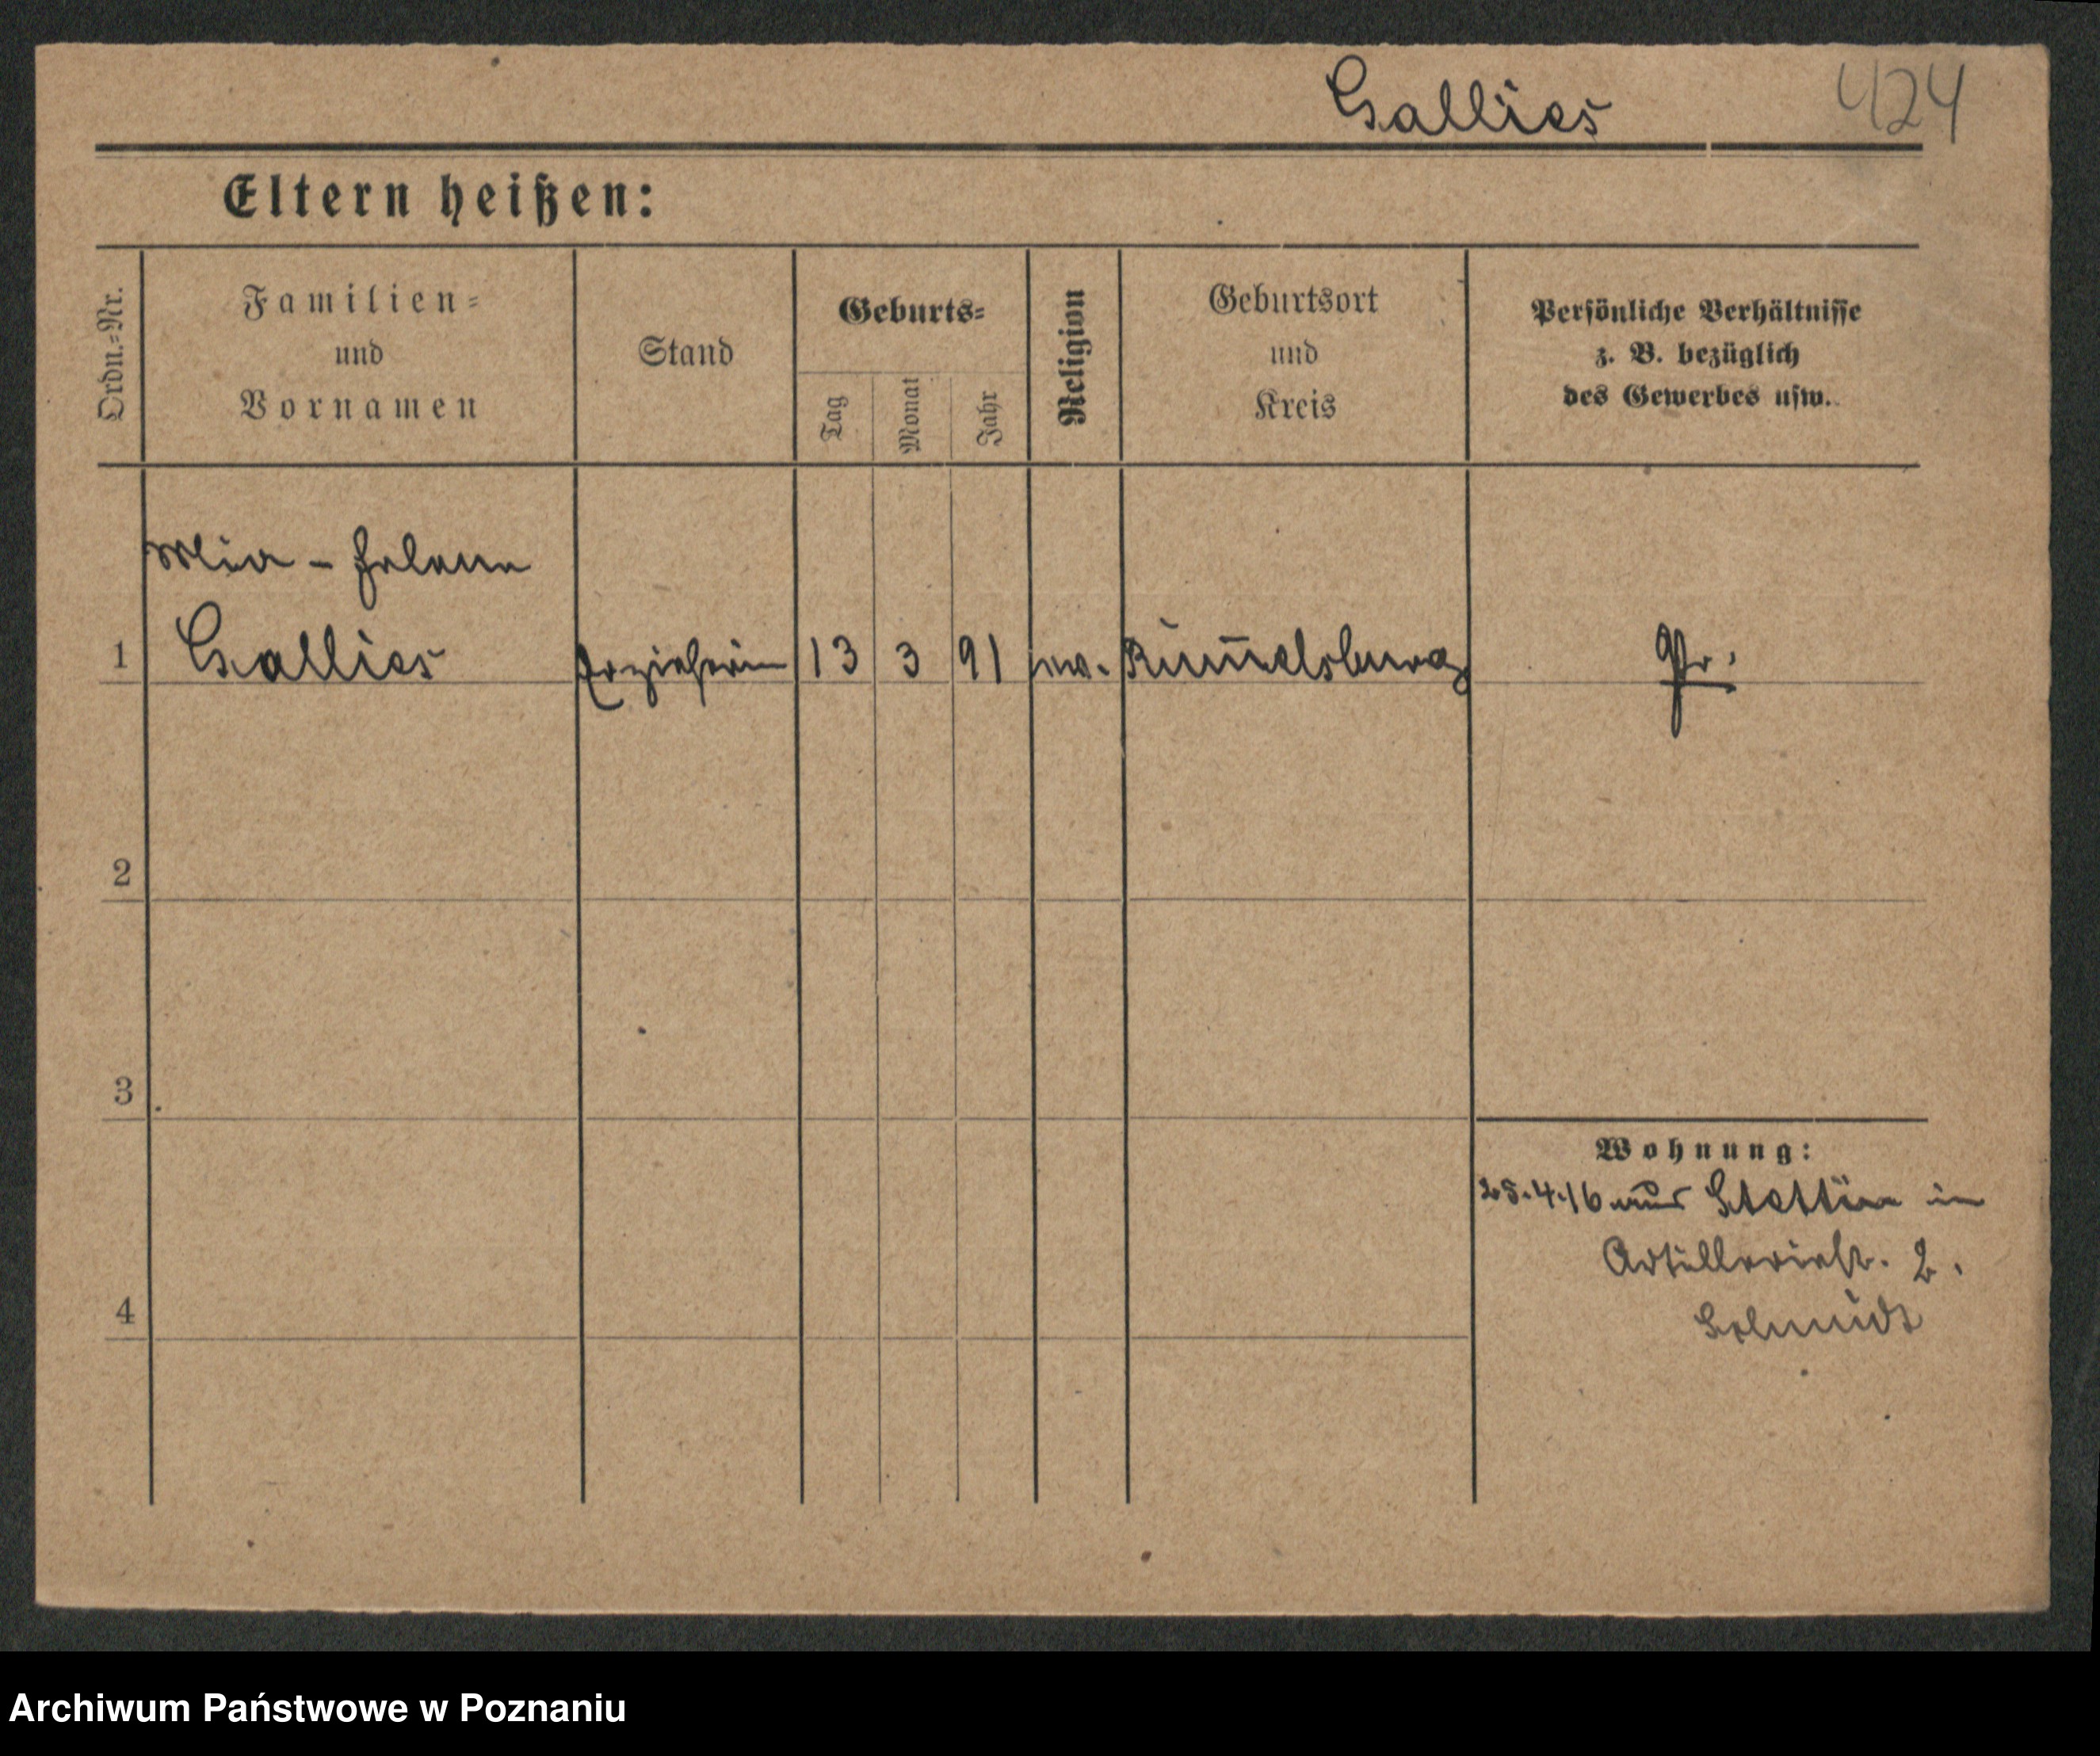 Gallies 424
Eltern heißen:
Ordn.-Nr.
Familien-
und
Vornamen
Stand
Geburts-
Tag
Monat
Jahr
Religion
Geburtsort
und
Kreis
Persönliche Verhältnisse
z. B. bezüglich
des Gewerbes usw.
Helene
1 Gallies Erzieherin 13 3 91 ev. Rum̄elsburg Pr.
2
3
Wohnung:
25.4.16 aus Stettin in
Artilleriestr. 2.
4
Schmidt
Archiwum Państwowe w Poznaniu